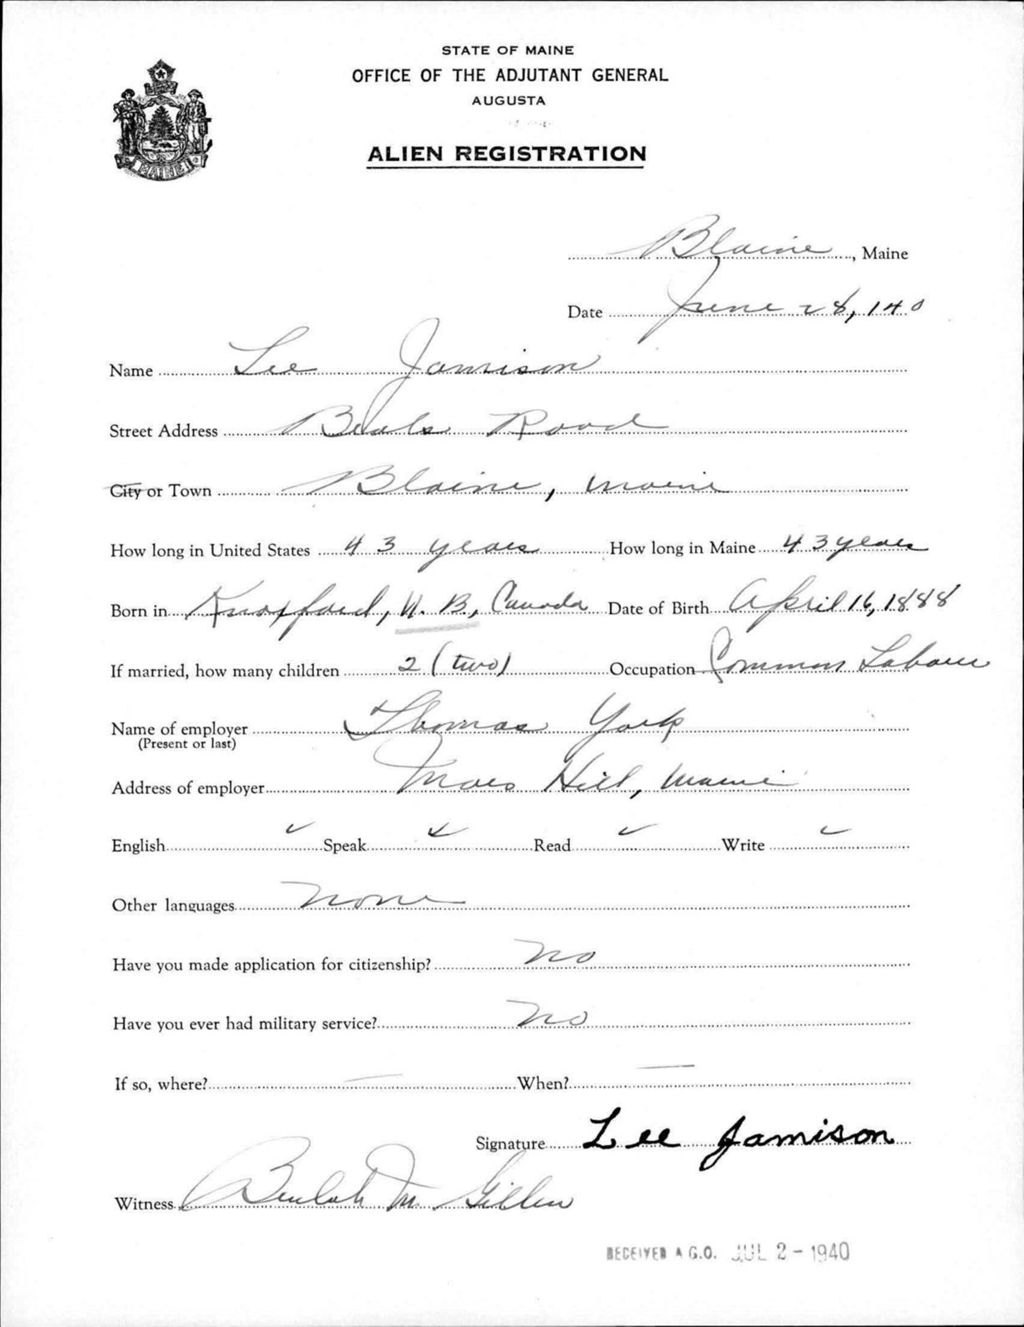 STATE OF MAINE
OFFICE OF THE ADJUTANT GENERAL
AUGUSTA
ALIEN REGISTRATION
MAINE
Blaine, Maine
Date June 28, 140
Name Lee Jamison
Street Address Beals Road
City or Town Blaine, Maine
How long in United States 43 years How long in Maine 43 years
Born in Knoxford, N. B., Canada Date of Birth April 16, 1888
If married, how many children 2 (two) Occupation Common Labour
Name of employer Thomas York
(Present or last)
Address of employer Mars Hill, Maine
English ✓ Speak ✓ Read ✓ Write ✓
Other languages none
Have you made application for citizenship? No
Have you ever had military service? No
If so, where? — When? —
Signature Lee Jamison
Witness Beulah M. Gillen
RECEIVED A.G.O. JUL 2 - 1940